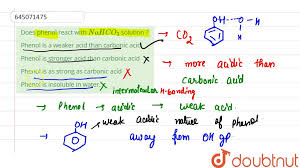 645071475
Does phenol react with NaHCO₃ solution ?
Phenol is a weaker acid than carbonic acid
Phenol is stronger acid than carbonic acid X
Phenol is as strong as carbonic acid X
Phenol is insoluble in water X
→ CO₂
OH
O
H
H
→ more acidic than
carbonic acid
intermolecular H-bonding
→ Phenol → acidic → weak acid.
→ OH → weak acidic nature of phenol
away from OH gp
doubtnut